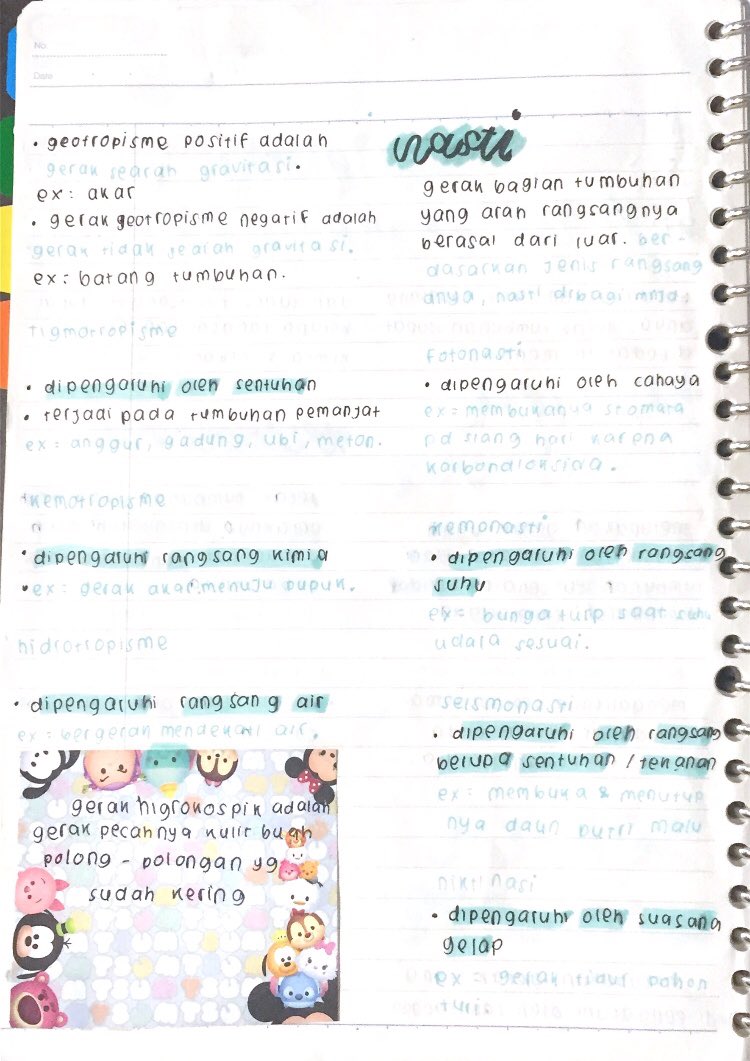 No
Date
• geotropisme positif adalah
gerak searah gravitasi.
ex : akar
• gerak geotropisme negatif adalah
gerak tidak searah gravitasi.
ex : batang tumbuhan.
tigmotropisme
• dipengaruhi oleh sentuhan
• terjadi pada tumbuhan pemanjat
ex : anggur, gadung, ubi, melon.
kemotropisme
• dipengaruhi rangsang kimia
• ex : gerak akar menuju pupuk.
hidrotropisme
• dipengaruhi rangsang air
ex : bergerak mendekati air.
gerak higrokospik adalah
gerak pecahnya kulit buah
polong - polongan yg
sudah kering
nasti
gerak bagian tumbuhan
yang arah rangsangnya
berasal dari luar. ber-
dasarkan jenis rangsang
annya, nasti dibagi mnjd:
fotonasti
• dipengaruhi oleh cahaya
ex = membukanya stomata
pd siang hari karena
karbondioksida.
kemonasti
• dipengaruhi oleh rangsang
suhu
ex = bunga tulip saat suhu
udara sesuai.
seismonasti
• dipengaruhi oleh rangsang
berupa sentuhan / tekanan
ex = membuka & menutup
nya daun putri malu
niktinasi
• dipengaruhi oleh suasana
gelap
ex = gerak tidur pohon